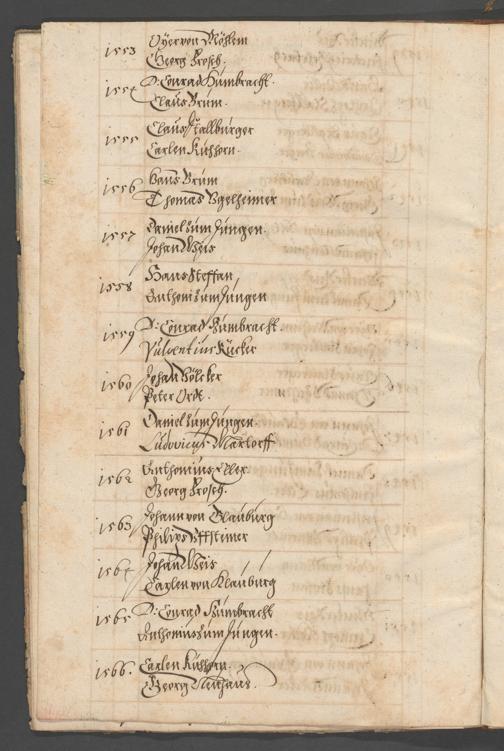 1553 Ogier von Mehlem
Georg Frosch.
1554 Dr. Conrad Humbracht.
Claus Brum.
1555 Claus Stallburger
Carlen Kuhhorn.
1556 Hans Brum
Thomas Ugelheimer
1557 Daniel zum Jungen.
Johan Weis
1558 Hans Steffan,
Anthoni zum Jungen
1559 Dr. Conrad Humbracht.
Valentinus Rucker
1560 Johan Völcker
Peter Ort.
1561 Daniel zum Jungen
Ludovicus Martorff
1562 Anthonius Eller
Georg Frosch.
1563 Johann von Glauburg
Philips Uffsteiner
1564 Johan Weis
Carlen von Glauburg
1565 Dr. Conrad Humbracht
Anthonius zum Jungen.
1566. Carlen Kuhhorn.
Georg Neuhaus.